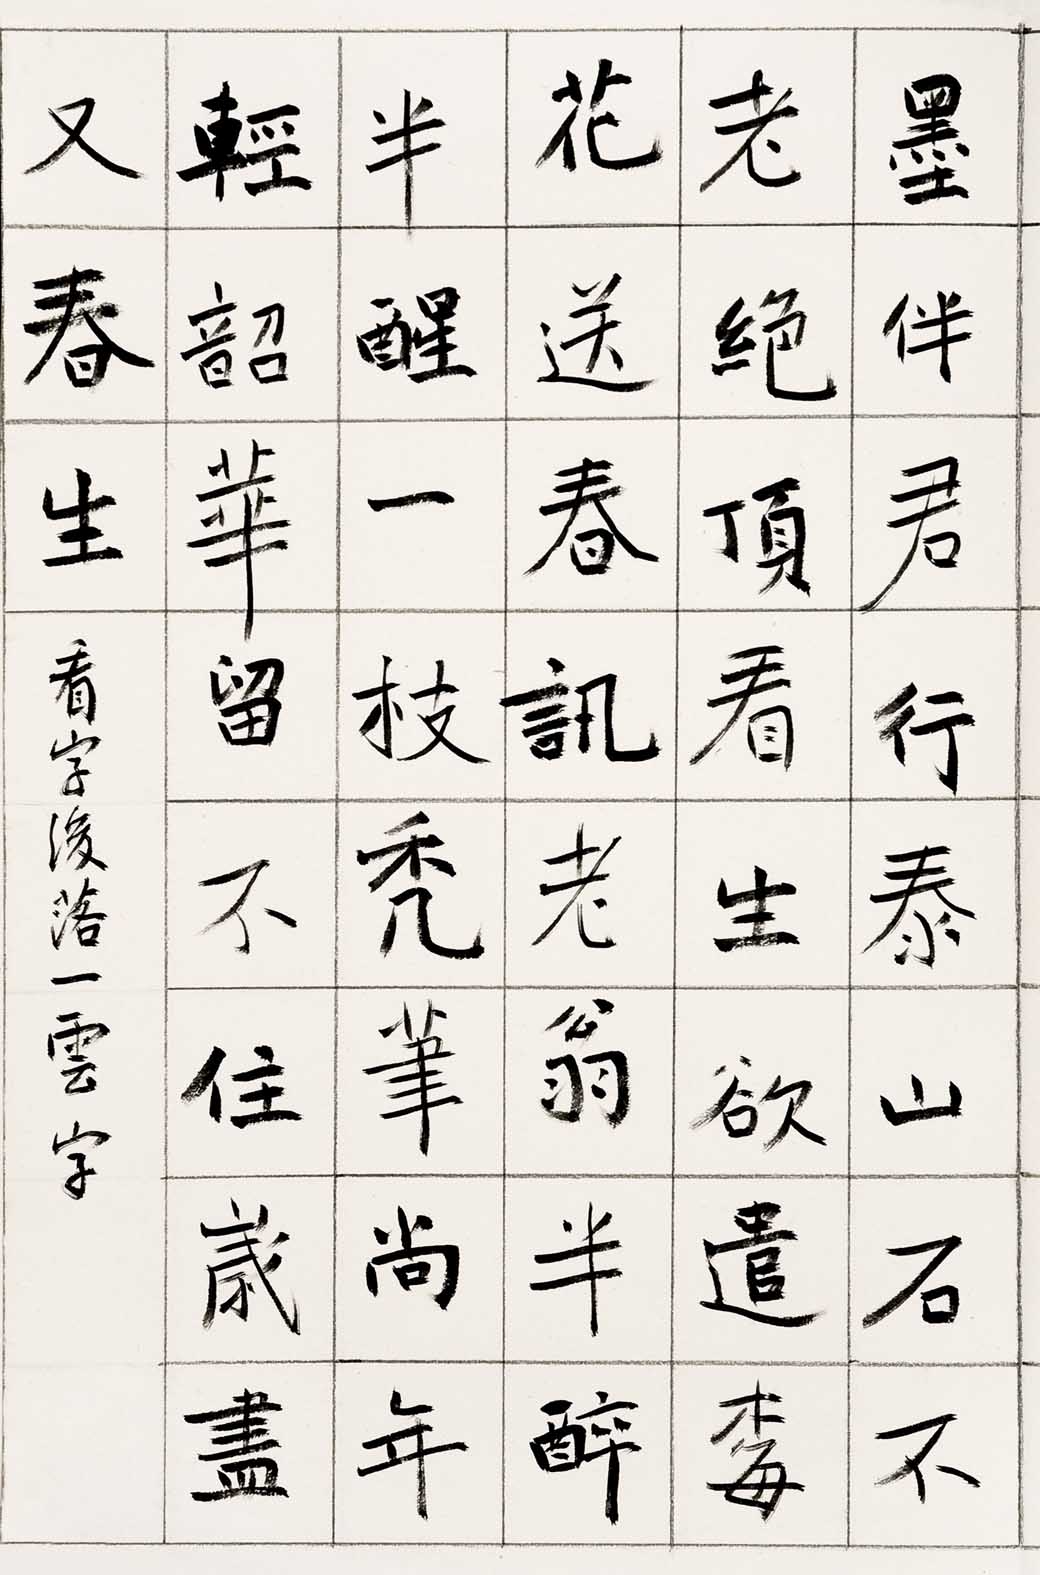 墨伴君行泰山石不
老絕頂看生欲遣梅
花送春訊老翁半醉
半醒一枝禿筆尚年
輕韶華留不住歲盡
又春生
看字後落一雲字